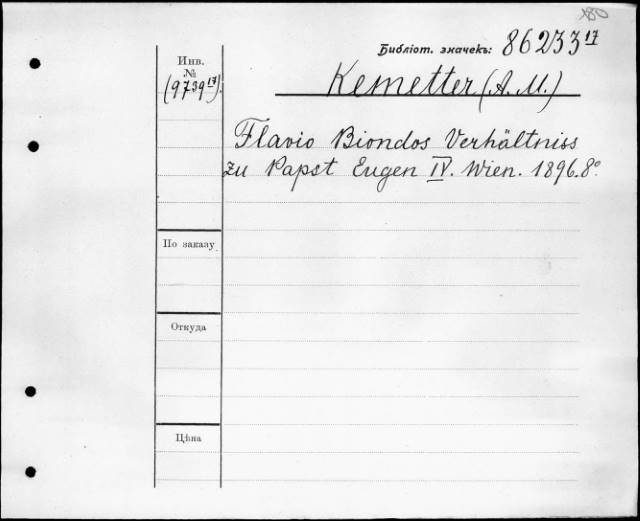 180
Библіот. значекъ: 86233 17
Инв.
№
(9739 17).
Kemetter (A. M.)
Flavio Biondos Verhältniss
zu Papst Eugen IV. Wien. 1896. 8º.
По заказу
Откуда
Цѣна